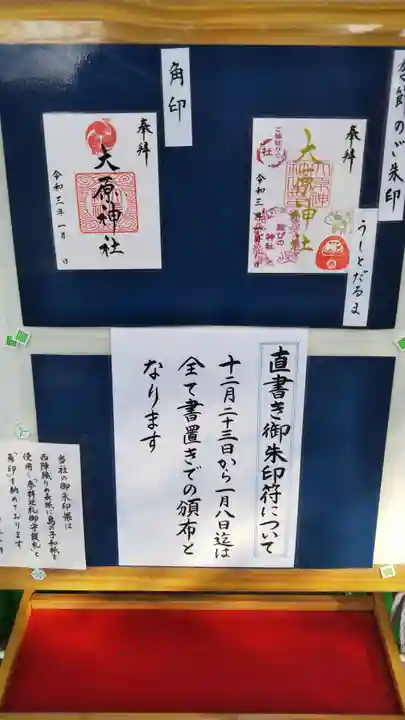 季節のご朱印
奉拝
大原神社
令和三年
うしとだるま
角印
奉拝
大原神社
令和三年一月 日
直書き御朱印符について
十二月二十三日から一月八日迄は
全て書置きでの頒布と
なります
当社の御朱印帳は
西陣織りの表紙に鳥の子和紙を
使用し参拝巡礼御守護札と
「角印」を納めております